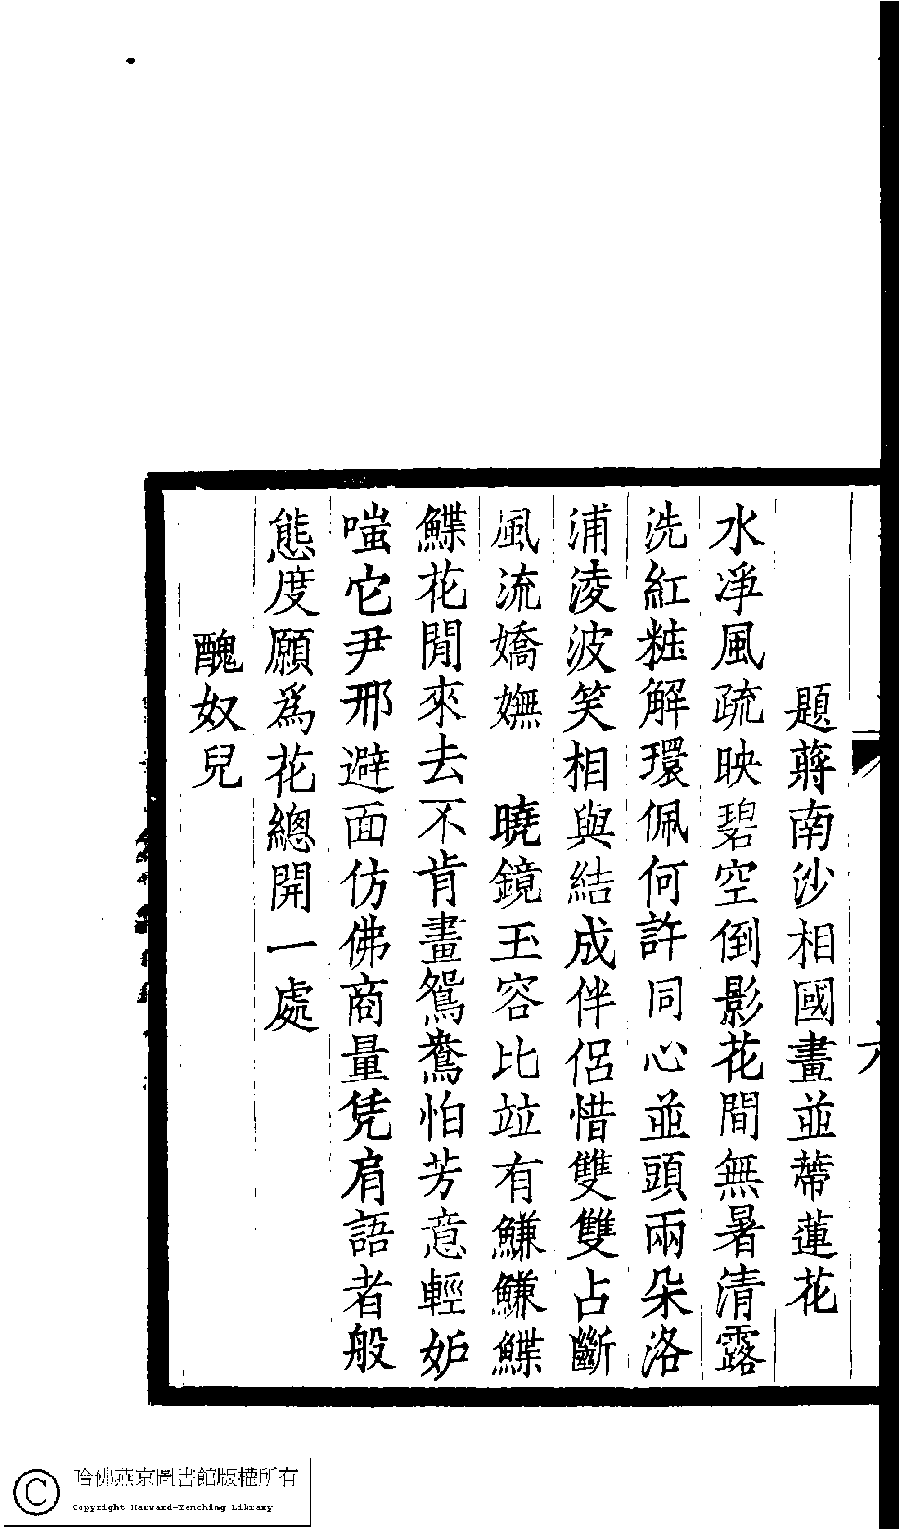 題蔣南沙相國畫並蔕蓮花
水凈風疏映碧空倒影花間無暑清露
洗紅粧解環佩何許同心並頭兩朵洛
浦淩波笑相與結成伴侶惜雙雙占斷
風流嬌嫵　曉鏡玉容比竝有鰜鰜鰈
鰈花閒來去不肯畫鴛鴦怕芳意輕妒
嗤它尹邢避面仿佛商量凭肩語者般
態度願爲花總開一處
醜奴兒
哈佛燕京圖書館版權所有
Copyright Harvard-Yenching Library